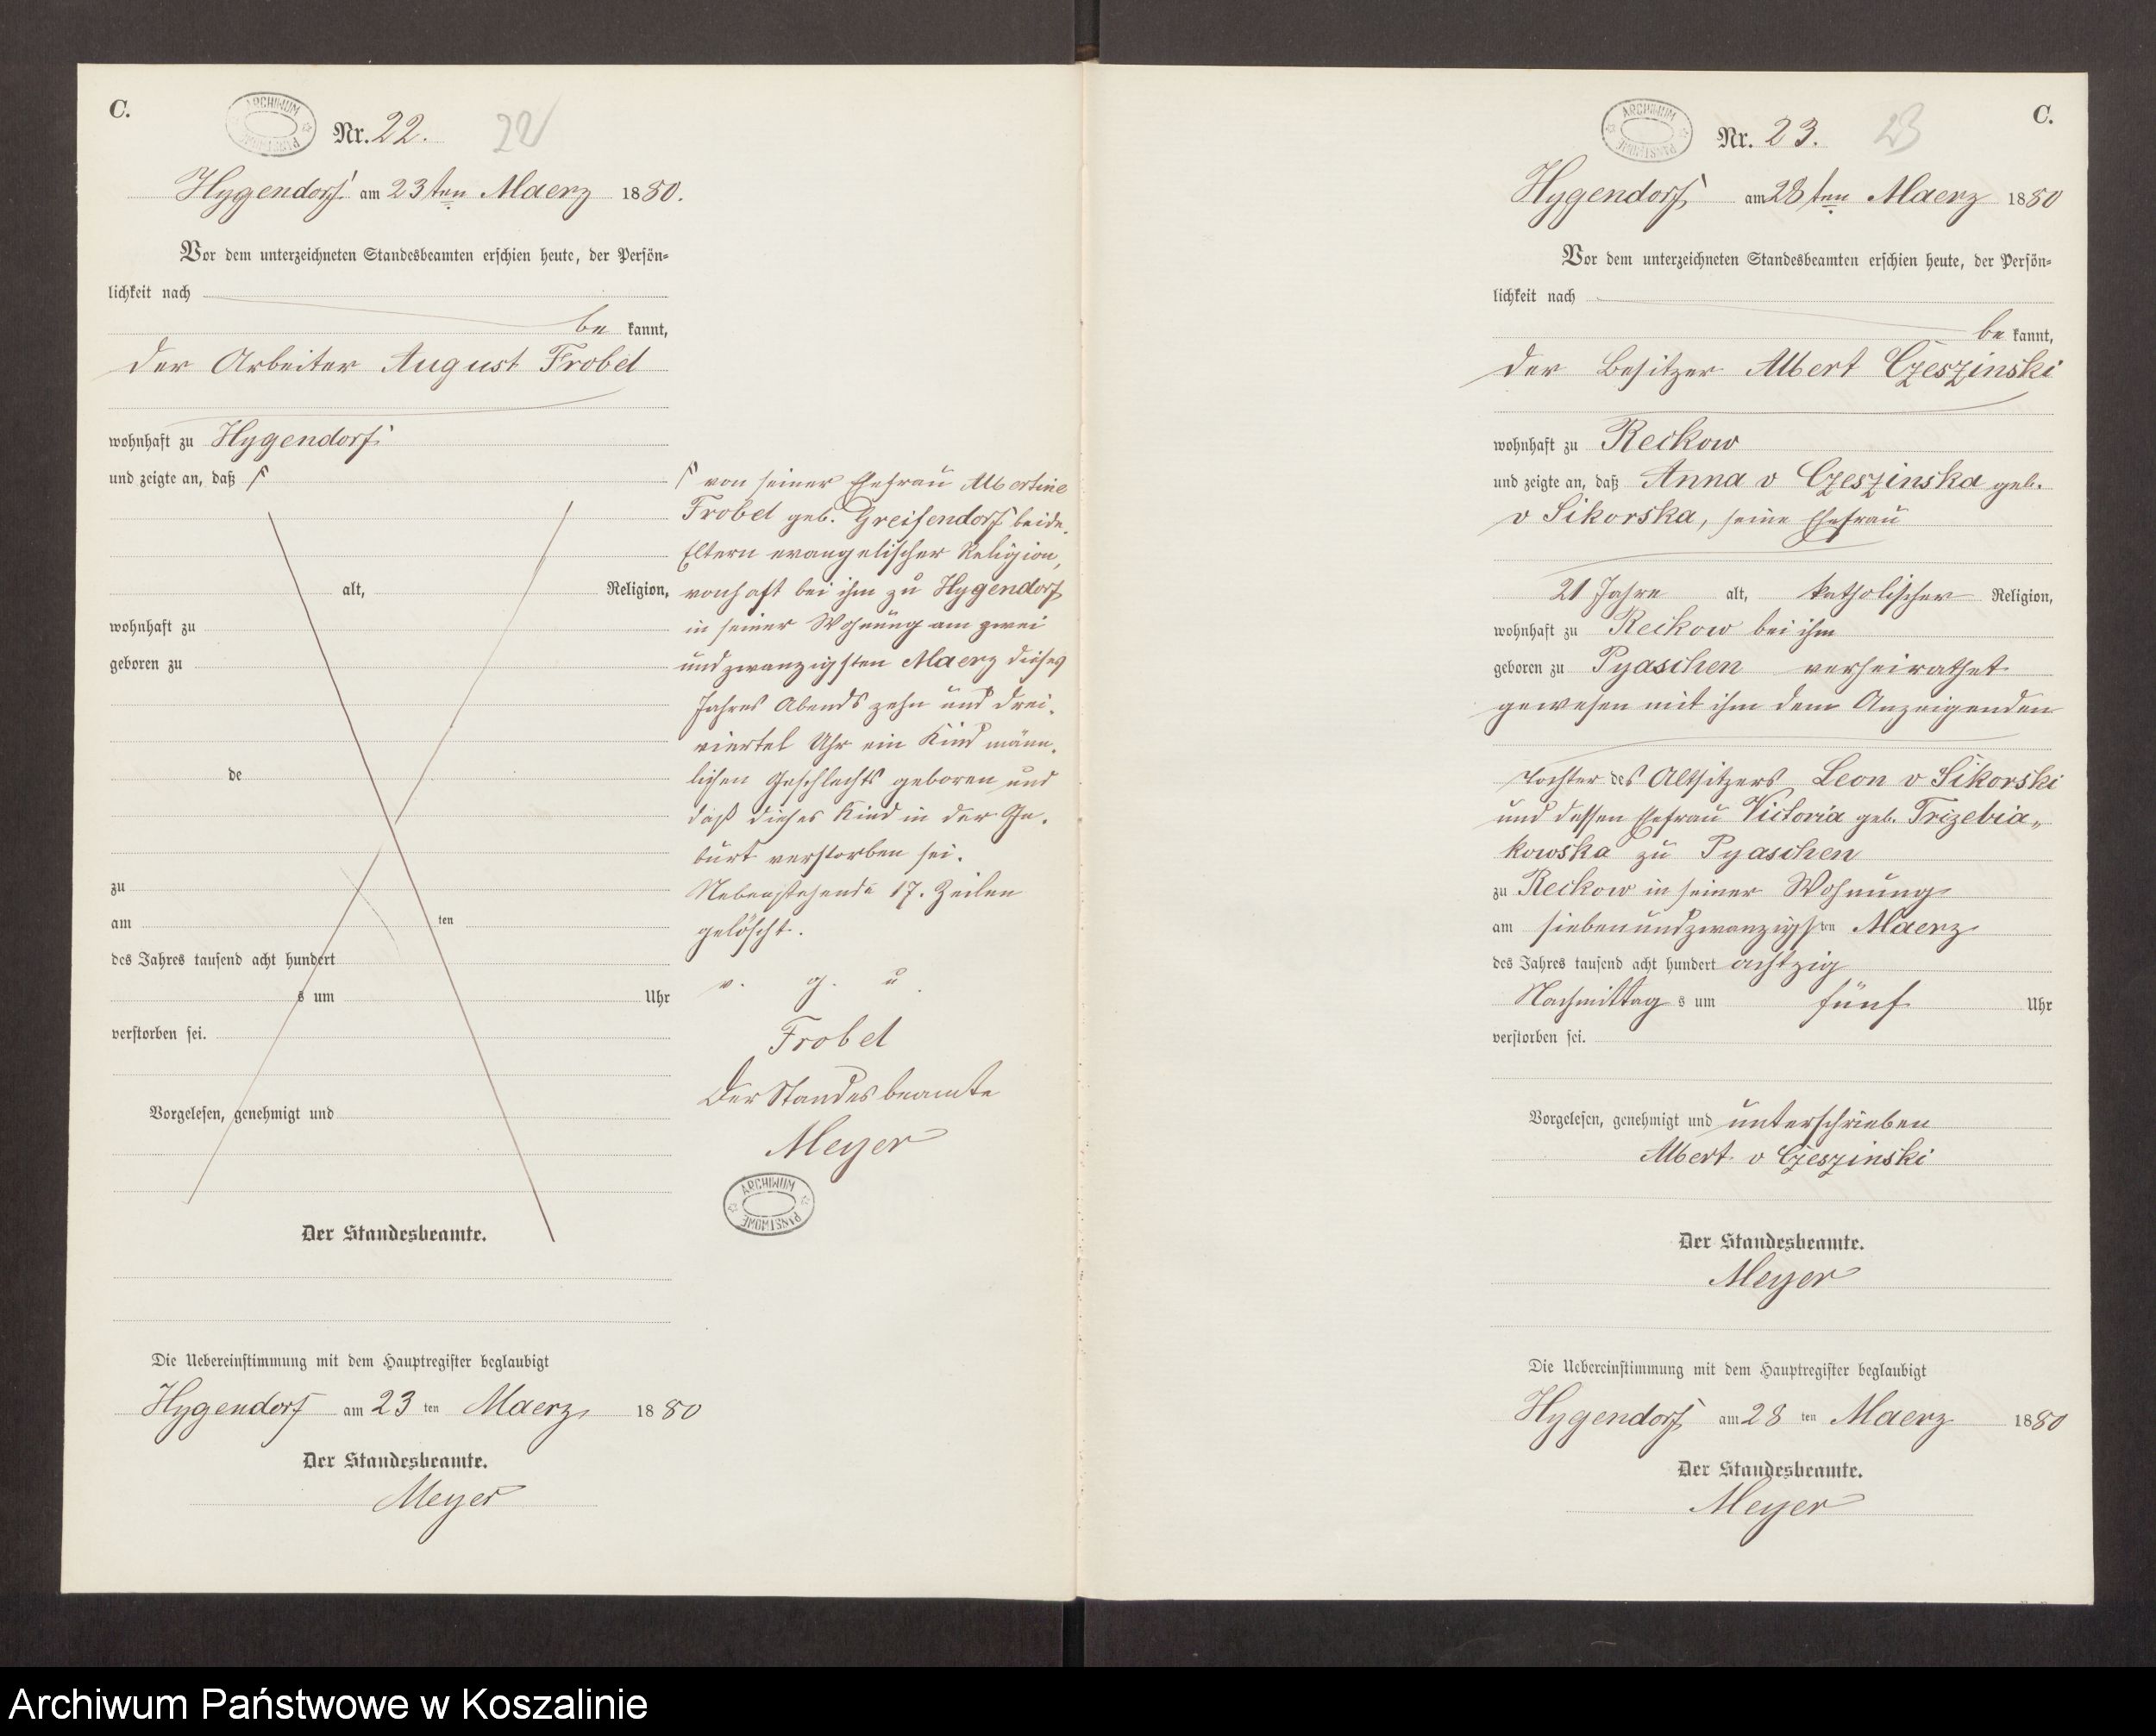 C.
ARCHIWUM PAŃSTWOWE
Nr. 22.
22
Hygendorf am 23ten Maerz 1880.
Vor dem unterzeichneten Standesbeamten erschien heute, der Persön-
lichkeit nach
be kannt,
der Arbeiter August Frobel
wohnhaft zu Hygendorf
und zeigte an, daß
alt, Religion,
wohnhaft zu
geboren zu
de
zu
am ten
des Jahres tausend acht hundert
s um Uhr
verstorben sei.
Vorgelesen, genehmigt und
Der Standesbeamte.
Die Uebereinstimmung mit dem Hauptregister beglaubigt
Hygendorf am 23 ten Maerz 1880
Der Standesbeamte.
Meyer
von seiner Ehefrau Albertine
Frobel geb. Greifendorf beide
Eltern evangelischer Religion,
wonhaft bei ihm zu Hygendorf
in seiner Wohnung am zwei
und zwanzigsten Maerz dieses
Jahres Abends zehn und drei-
viertel Uhr ein Kind männ-
lichen Geschlechts geboren und
daß dieses Kind in der Ge-
burt verstorben sei.
Nebenstehende 17. Zeilen
gelöscht.
v. g. u.
Frobel
Der Standesbeamte
Meyer
ARCHIWUM PAŃSTWOWE
C.
ARCHIWUM PAŃSTWOWE
Nr. 23.
23
Hygendorf am 28ten Maerz 1880
Vor dem unterzeichneten Standesbeamten erschien heute, der Persön-
lichkeit nach
be kannt,
der Besitzer Albert Czeszinski
wohnhaft zu Reckow
und zeigte an, daß Anna v Czeszinska geb.
v Sikorska, seine Ehefrau
21 Jahre alt, katholischer Religion,
wohnhaft zu Reckow bei ihm
geboren zu Pyaschen verheirathet
gewesen mit ihm dem Anzeigenden
Tochter des Altsitzers Leon v Sikorski
und dessen Ehefrau Victoria geb. Trizebia„
kowska zu Pyaschen
zu Reckow in seiner Wohnung
am siebenundzwanzigsten Maerz
des Jahres tausend acht hundert achtzig
Nachmittag s um fünf Uhr
verstorben sei.
Vorgelesen, genehmigt und unterschrieben
Albert v Czeszinski
Der Standesbeamte.
Meyer
Die Uebereinstimmung mit dem Hauptregister beglaubigt
Hygendorf am 28 ten Maerz 1880
Der Standesbeamte.
Meyer
Archiwum Państwowe w Koszalinie